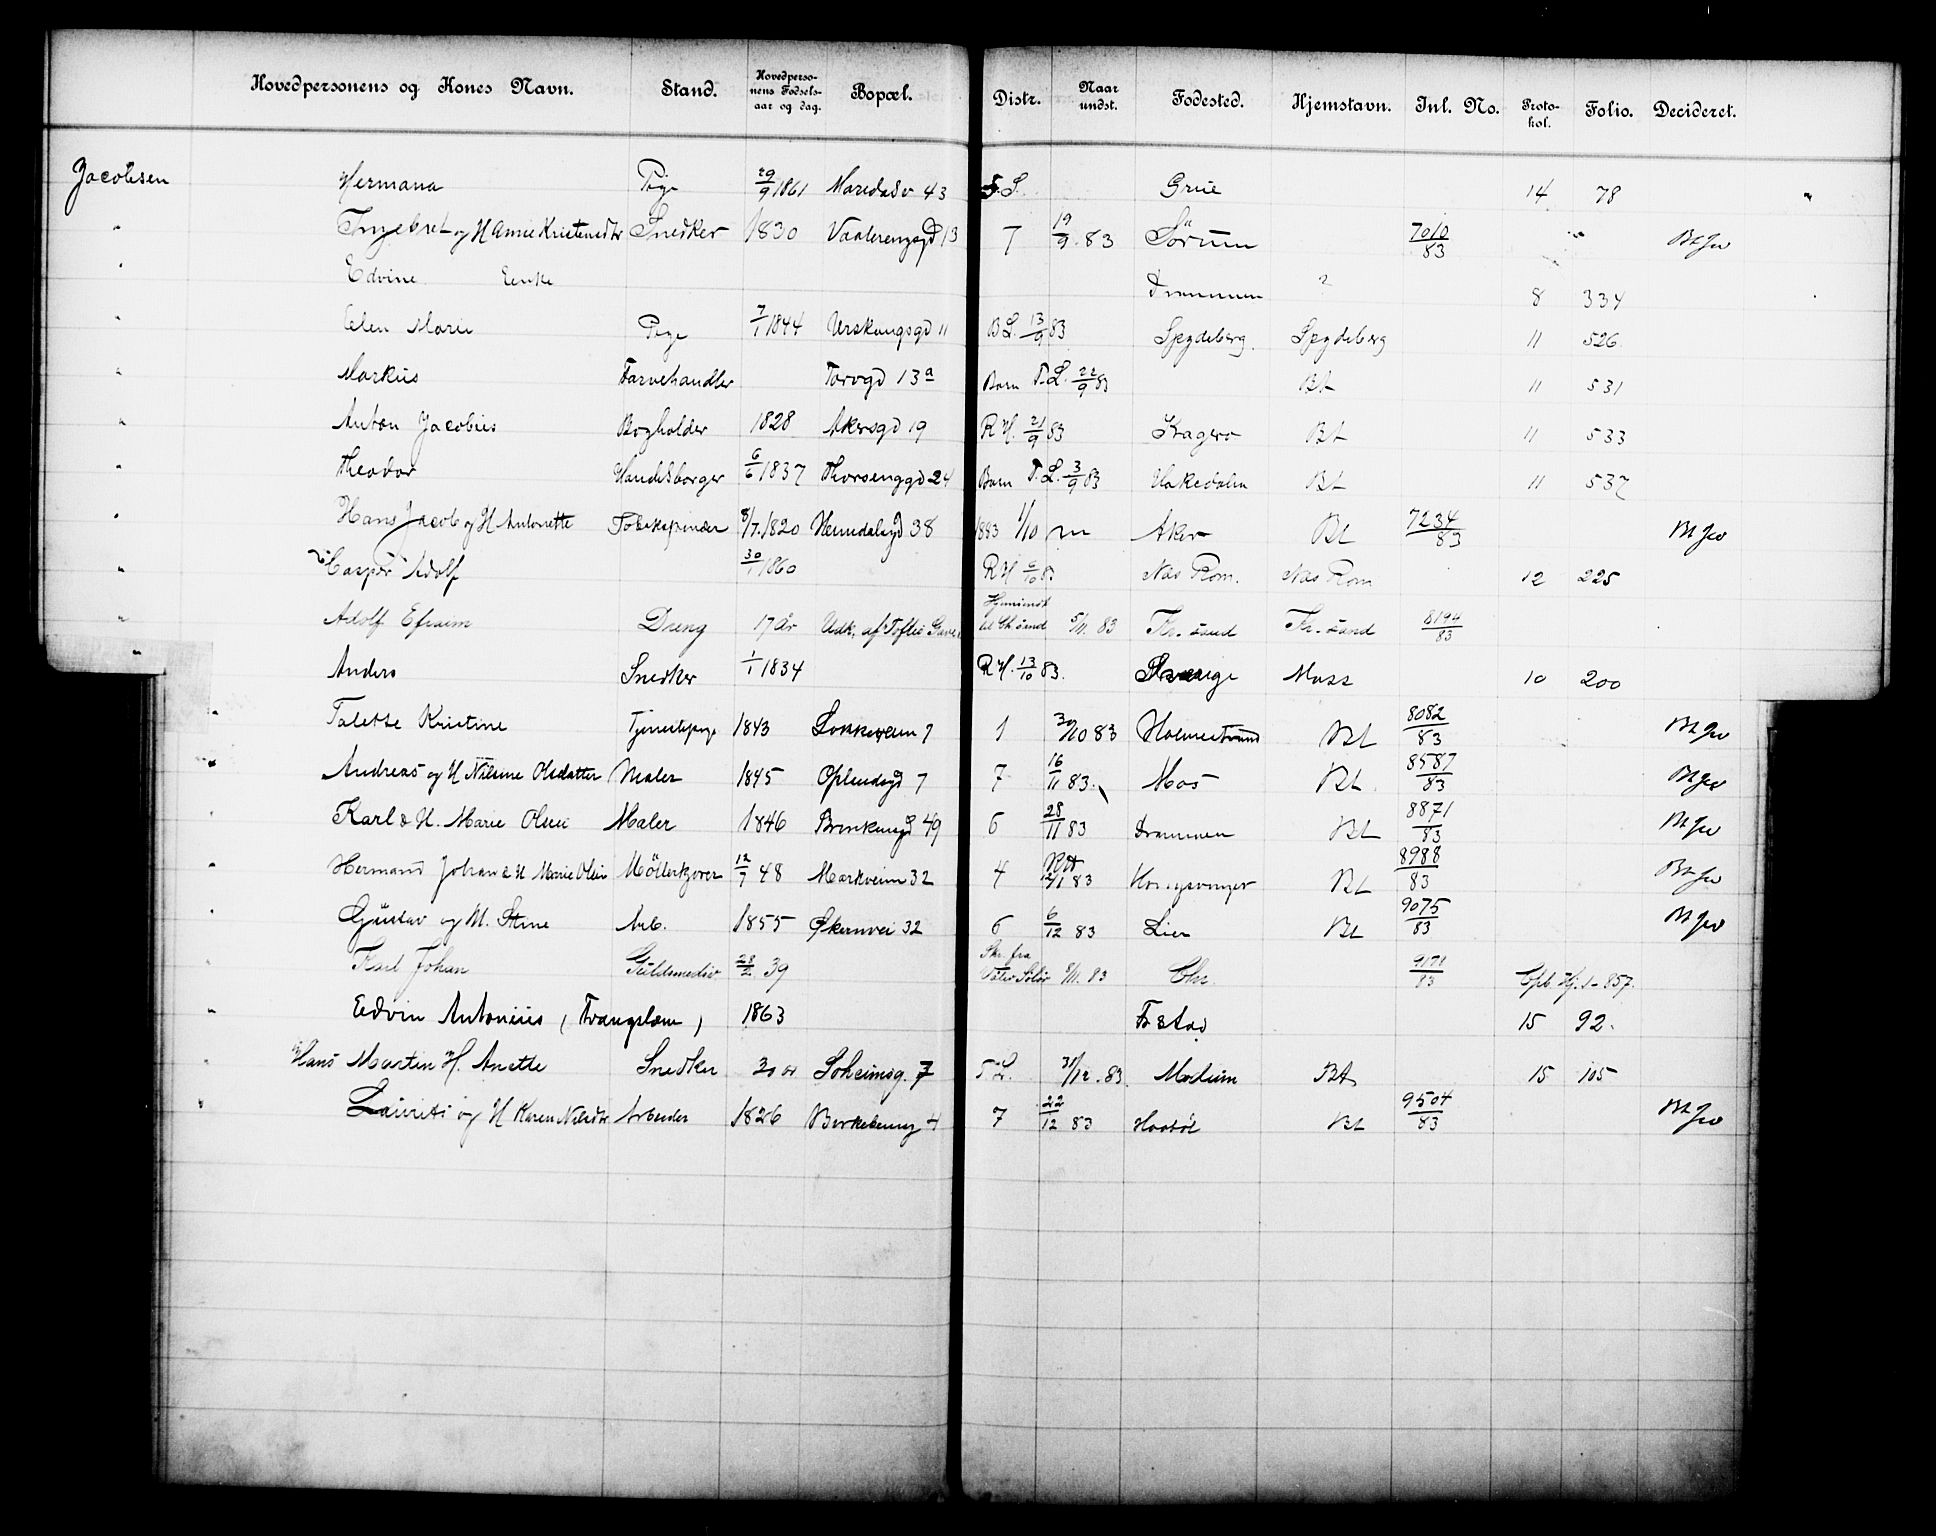 Hovedpersonens og Kones Navn. Stand. Hovedpersonens Fødselsaar og dag. Bopæl. Distr. Naar undst. Fødested. Hjemstavn. Inl. No. Protokol. Folio. Decideret.
Jacobsen Hermana Pige 29/9 1861 Maridalsv 43 F.L. Grue 14 78 "
" Ingebret og H Anne Kristensdtr Snedker 1830 Vaalerengsgd 13 7 19/9 83 Sørum 7010/83
" Edvine Enke Drammen ? 8 334
" Elen Marie Pige 7/1 1844 Urskougsgd 11 B L. 13/9 83 Spydeberg Spydeberg 11 526
" Markus Farvehandler Torvgd 13a Barn T.L. 22/9 83 Bt 11 531
" Anton Jacobus Bogholder 1828 Akersgd 19 R H. 21/9 83 Kragerø Bt 11 533
" Theodor Handelsborger 6/6 1837 Thorsenggd 24 Barn T.L. 3/9 83 Hakedalen Bt 11 537
" Hans Jacob og H Antonette 8/7 1820 38 1883 1/10 Aker Bt 7234/83
" Casper Adolf 30/1 1860 R H 6/10 83 Næs Rom. Næs Rom 12 225
" Adolf Efraim Dreng 17 år Udk. af Toftes Gave Hjemsendt til Chrsand 5/11. 83 Kr. sand Kr. sand 8194/83
" Anders Snedker 1/1 1834 R H. 13/10 83. Sverige Moss 10 200
" Talette Kristine Tjenestepige 1843 Lokkeveien 7 1 30/10 83 Holmestrand Bt 8082/83
" Andreas og H Nilsine Olsdatter Maler 1845 7 7 16/11 83. Mos Bt 8587/83
Karl & H. Marie Olsen Maler 1846 49 6 28/11 83 Drammen Bt 8871/83
" Hermand Johan & H Marie Olsen Möllerkjører 12/7 48 Markveien 32 4 83 Kongsvinger Bt 8988/83
" Gustav og H. Stine Arb. 1855 Økernvei 32 6 6/12 83 Lier Bt 9075/83
" Karl Johan Guldsmedsv 28/2 39 Skr. fra Våler Solør 8/11. 83 Chr. 83 857.
" Edvin Antonius (Tvangslem) 1863 Fstad 15 92.
" Hans Martin H. Anette Snedker 30 år Soheimsg. 7 T.L. 31/12. 83. Modum Bt 15 105
" Laurits og H Karen Nilsdtr Arbeider 1826 4 7 22/12 83 Haabøl Bt 9504/83